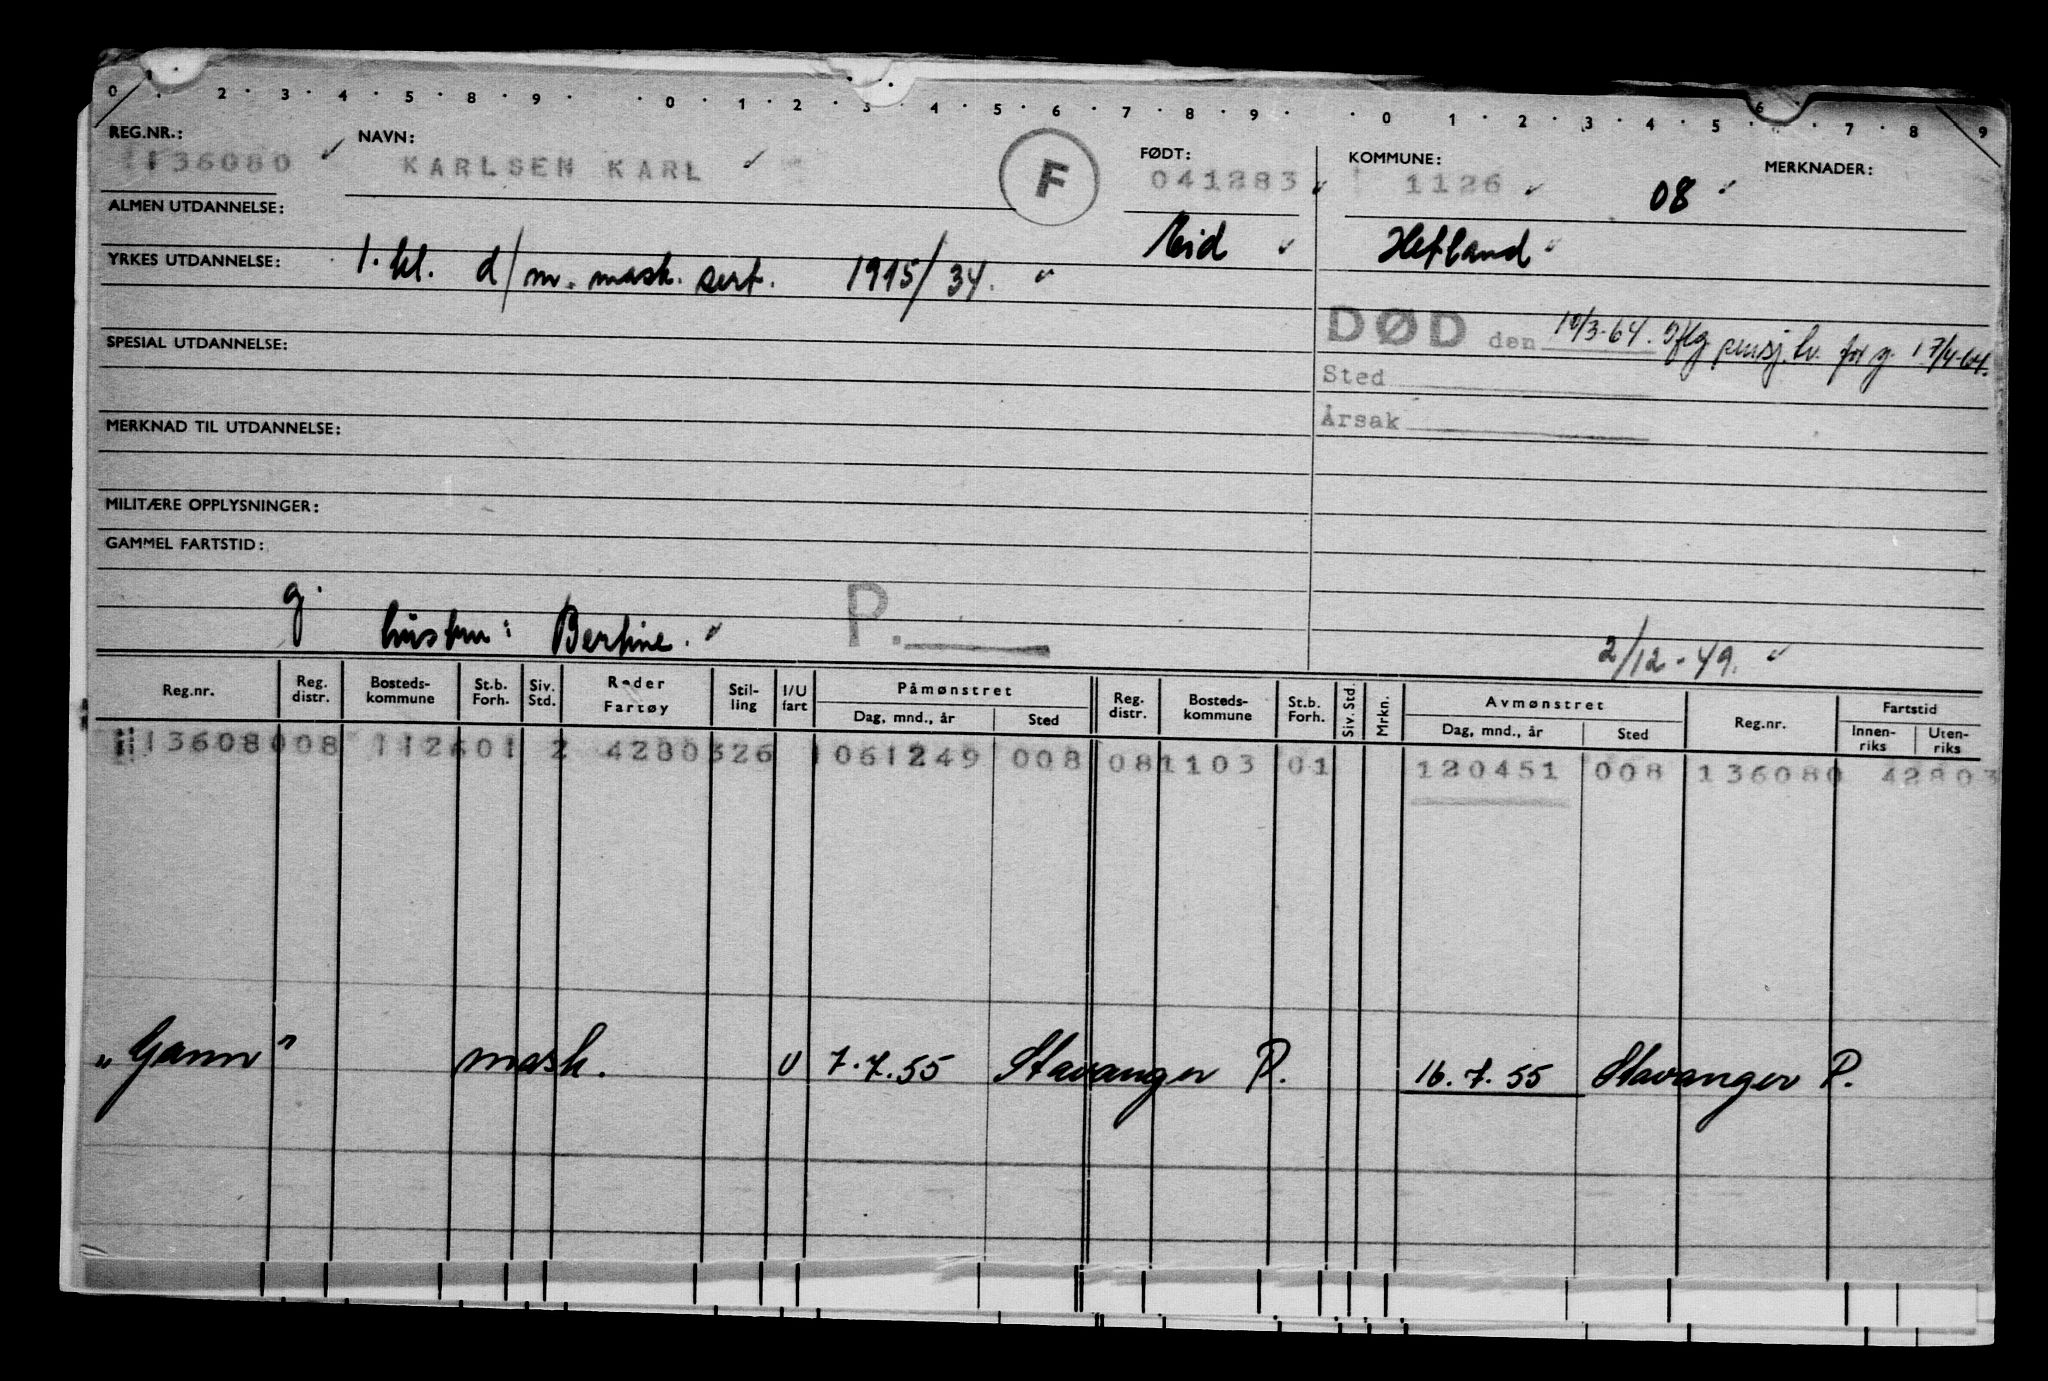 0 2 3 4 5 8 9 0 1 2 3 4 5 6 7 8 9 0 1 2 3 4 5 6 7 8 9
REG.NR.: NAVN: FØDT: KOMMUNE: MERKNADER:
136080 KARLSEN KARL F 041283 1126 08
ALMEN UTDANNELSE: Eid Hetland
YRKES UTDANNELSE: 1. kl. d/m. mask. sert. 1915/34.
DØD den 10/3-64. Iflg pensj. lv. for g. 17/4-64.
SPESIAL UTDANNELSE:
Sted
Årsak
MERKNAD TIL UTDANNELSE:
MILITÆRE OPPLYSNINGER:
GAMMEL FARTSTID:
g. hustru: Bertine. P.
2/12-49.
Reg.nr. Reg. distr. Bosteds-kommune St.b. Forh. Siv. Std. Reder Fartøy Stil-ling I/U fart Påmønstret Dag, mnd., år Sted Reg. distr. Bosteds-kommune St.b. Forh. Siv. Std. Mrkn. Avmønstret Dag, mnd., år Sted Reg.nr. Fartstid Innen-riks Uten-riks
136080 08 1126 01 2 4280326 061249 008 08 1103 01 120451 008 136080 42803
"Gann" mask. U 7.7.55 Stavanger P. 16.7.55 Stavanger P.